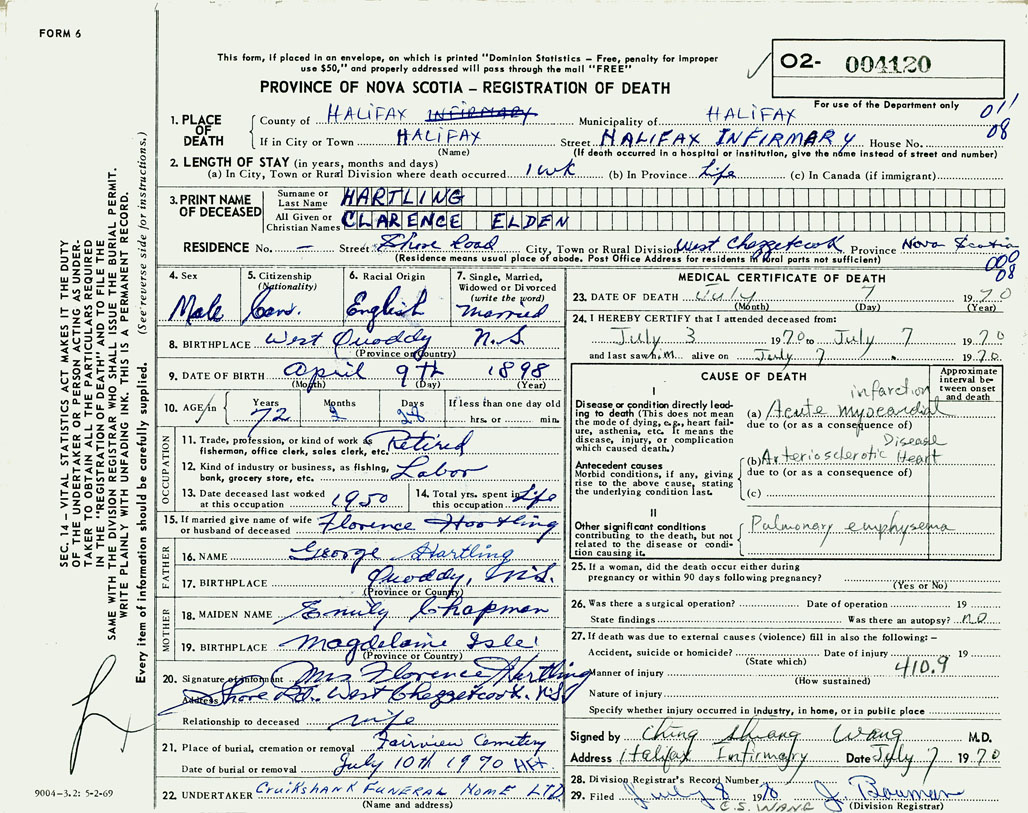 FORM 6
This form, if placed in an envelope, on which is printed "Dominion Statistics – Free, penalty for improper
use $50," and properly addressed will pass through the mail "FREE"
PROVINCE OF NOVA SCOTIA – REGISTRATION OF DEATH
O2- 004120
For use of the Department only
011
08
1. PLACE OF DEATH
County of HALIFAX INFIRMARY Municipality of HALIFAX
If in City or Town HALIFAX Street HALIFAX INFIRMARY House No.
(Name) (If death occurred in a hospital or institution, give the name instead of street and number)
2. LENGTH OF STAY (in years, months and days)
(a) In City, Town or Rural Division where death occurred 1 wk (b) In Province Life (c) In Canada (if immigrant)
3. PRINT NAME OF DECEASED
Surname or Last Name HARTLING
All Given or Christian Names CLARENCE ELDEN
RESIDENCE No. – Street Shore Road City, Town or Rural Division West Chezzetcook Province Nova Scotia
(Residence means usual place of abode. Post Office Address for residents in rural parts not sufficient)
000
08
4. Sex Male
5. Citizenship (Nationality) Can.
6. Racial Origin English
7. Single, Married, Widowed or Divorced (write the word) Married
8. BIRTHPLACE West Quoddy N.S.
(Province or Country)
9. DATE OF BIRTH April 9th 1898
(Month) (Day) (Year)
10. AGE in Years 72 Months 2 Days 28 If less than one day old hrs. or min.
OCCUPATION
11. Trade, profession, or kind of work as fisherman, office clerk, sales clerk, etc. Retired
12. Kind of industry or business, as fishing, bank, grocery store, etc. Labor
13. Date deceased last worked at this occupation 1950
14. Total yrs. spent in this occupation Life
15. If married give name of wife or husband of deceased Florence Hartling
FATHER
16. NAME George Hartling
17. BIRTHPLACE Quoddy, N.S.
(Province or Country)
MOTHER
18. MAIDEN NAME Emily Chapman
19. BIRTHPLACE Magdelaine Isle
(Province or Country)
20. Signature of informant Mrs Florence Hartling
Address Shore Rd. West Chezzetcook. N.S
Relationship to deceased wife
21. Place of burial, cremation or removal Fairview Cemetery
Date of burial or removal July 10th 1970 HFX.
22. UNDERTAKER Cruikshank Funeral Home LTD.
(Name and address)
MEDICAL CERTIFICATE OF DEATH
23. DATE OF DEATH July 7 1970
(Month) (Day) (Year)
24. I HEREBY CERTIFY that I attended deceased from:
July 3 1970 to July 7 1970
and last saw him alive on July 7 1970.
CAUSE OF DEATH
Approximate interval between onset and death
I
Disease or condition directly leading to death (This does not mean the mode of dying, e.g., heart failure, asthenia, etc. It means the disease, injury, or complication which caused death.)
(a) Acute myocardial infarction
due to (or as a consequence of)
Antecedent causes
Morbid conditions, if any, giving rise to the above cause, stating the underlying condition last.
(b) Arteriosclerotic Heart Disease
due to (or as a consequence of)
(c)
II
Other significant conditions contributing to the death, but not related to the disease or condition causing it.
Pulmonary emphysema
25. If a woman, did the death occur either during
pregnancy or within 90 days following pregnancy?
(Yes or No)
26. Was there a surgical operation? Date of operation 19
State findings Was there an autopsy? no
27. If death was due to external causes (violence) fill in also the following:–
Accident, suicide or homicide? Date of injury 19
(State which)
Manner of injury 410.9
(How sustained)
Nature of injury
Specify whether injury occurred in industry, in home, or in public place
Signed by Ching Shiang Wang M.D.
Address Halifax Infirmary Date July 7 1970
28. Division Registrar's Record Number
29. Filed July 8 1970 J. Bauman
C.S. WANG (Division Registrar)
SEC. 14 – VITAL STATISTICS ACT MAKES IT THE DUTY
OF THE UNDERTAKER OR PERSON ACTING AS UNDER-
TAKER TO OBTAIN ALL THE PARTICULARS REQUIRED
IN THE "REGISTRATION OF DEATH" AND TO FILE THE
SAME WITH THE DIVISION REGISTRAR WHO SHALL ISSUE THE BURIAL PERMIT.
WRITE PLAINLY WITH UNFADING INK. THIS IS A PERMANENT RECORD.
Every item of information should be carefully supplied. (See reverse side for instructions.)
9004-3.2: 5-2-69